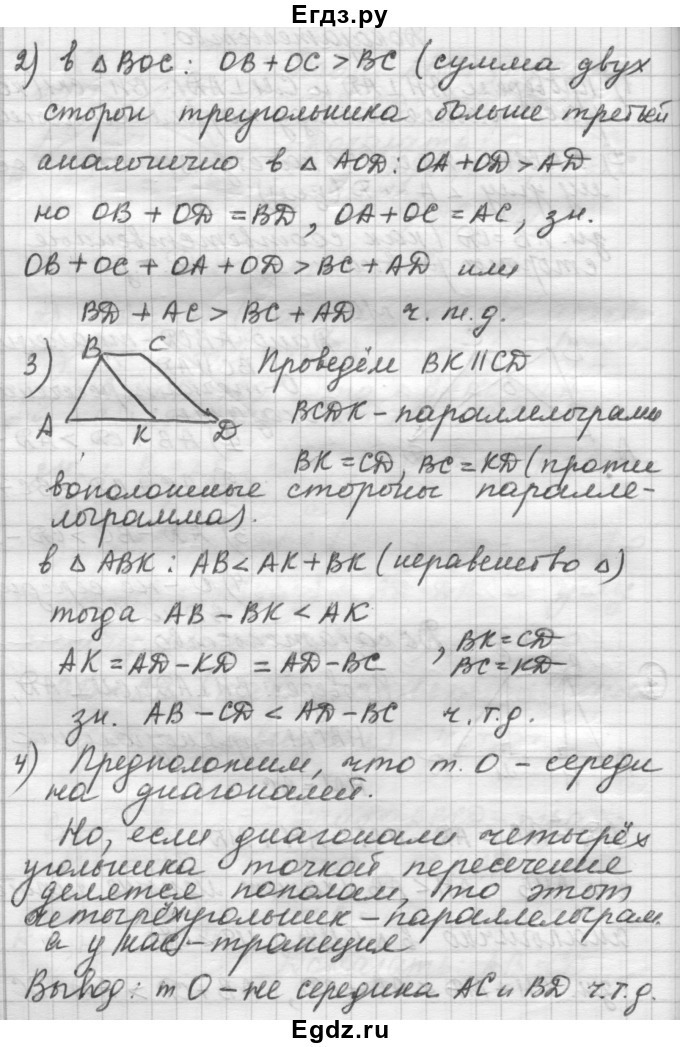 Егдз.ру
2) в △ BOC : OB + OC > BC ( сумма двух
сторон треугольника больше третьей
аналогично в △ AOD : OA + OD > AD
но OB + OD = BD , OA + OC = AC , зн.
OB + OC + OA + OD > BC + AD или
BD + AC > BC + AD ч. т. д.
3) B C Проведём BK || CD
A K D BCDK - параллелограмм
BK = CD , BC = KD ( проти
воположные стороны паралле-
лограмма).
в △ ABK : AB < AK + BK ( неравенство △)
тогда AB - BK < AK
AK = AD - KD = AD - BC , BK = CD
BC = KD
зн. AB - CD < AD - BC ч. т. д.
4) Предположим, что т. O - середи
на диагоналей.
Но, если диагонали четырёх
угольника точкой пересечения
делятся пополам, то этот
четырёхугольник - параллелограм.
а у нас - трапеция
Вывод : т O - не середина AC и BD ч.т.д.
Egdz.ru